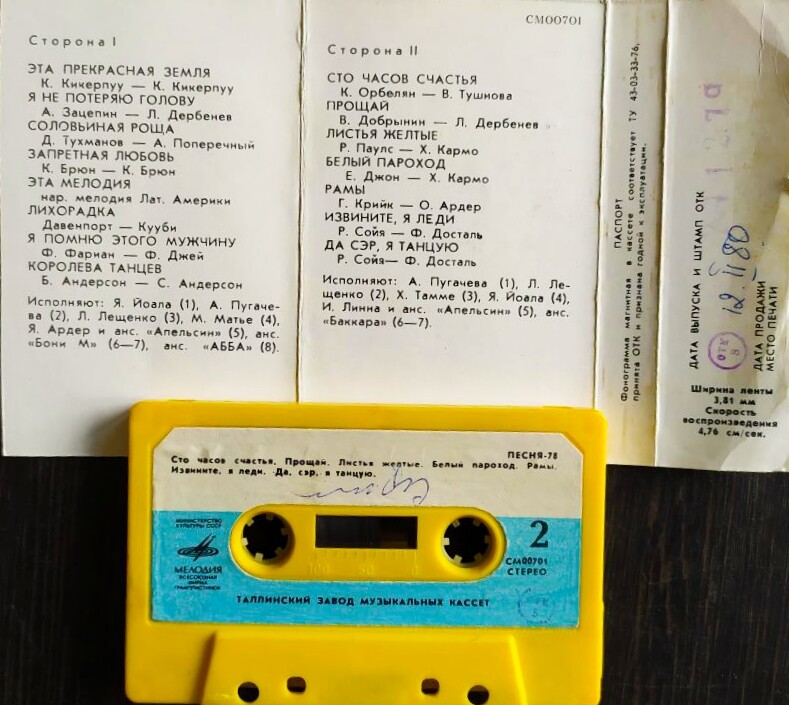 СМ00701
Сторона I
ЭТА ПРЕКРАСНАЯ ЗЕМЛЯ
К. Кикерпуу — К. Кикерпуу
Я НЕ ПОТЕРЯЮ ГОЛОВУ
А. Зацепин — Л. Дербенев
СОЛОВЬИНАЯ РОЩА
Д. Тухманов — А. Поперечный
ЗАПРЕТНАЯ ЛЮБОВЬ
К. Брюн — К. Брюн
ЭТА МЕЛОДИЯ
нар. мелодия Лат. Америки
ЛИХОРАДКА
Давенпорт — Кууби
Я ПОМНЮ ЭТОГО МУЖЧИНУ
Ф. Фариан — Ф. Джей
КОРОЛЕВА ТАНЦЕВ
Б. Андерсон — С. Андерсон
Исполняют: Я. Йоала (1), А. Пугаче-
ва (2), Л. Лещенко (3), М. Матье (4),
Я. Ардер и анс. «Апельсин» (5), анс.
«Бони М» (6—7), анс. «АББА» (8).
Сторона II
СТО ЧАСОВ СЧАСТЬЯ
К. Орбелян — В. Тушнова
ПРОЩАЙ
В. Добрынин — Л. Дербенев
ЛИСТЬЯ ЖЕЛТЫЕ
Р. Паулс — Х. Кармо
БЕЛЫЙ ПАРОХОД
Е. Джон — Х. Кармо
РАМЫ
Г. Крийк — О. Ардер
ИЗВИНИТЕ, Я ЛЕДИ
Р. Сойя — Ф. Досталь
ДА СЭР, Я ТАНЦУЮ
Р. Сойя— Ф. Досталь
Исполняют: А. Пугачева (1), Л. Ле-
щенко (2), Х. Тамме (3), Я. Йоала (4),
И. Линна и анс. «Апельсин» (5), анс.
«Баккара» (6—7).
ПАСПОРТ
Фонограмма магнитная в кассете соответствует ТУ 43-03-33-76,
принята ОТК и признана годной к эксплуатации.
ДАТА ВЫПУСКА И ШТАМП ОТК
ОТК
8
12.II 80
ДАТА ПРОДАЖИ
МЕСТО ПЕЧАТИ
Ширина ленты
3,81 мм
Скорость
воспроизведения
4,76 см/сек.
ПЕСНЯ-78
Сто часов счастья. Прощай. Листья желтые. Белый пароход. Рамы.
Извините, я леди. Да, сэр, я танцую.
МИНИСТЕРСТВО
КУЛЬТУРЫ СССР
МЕЛОДИЯ
ВСЕСОЮЗНАЯ
ФИРМА
ГРАМПЛАСТИНОК
100 50 0
2
СМ00701
СТЕРЕО
ТАЛЛИНСКИЙ ЗАВОД МУЗЫКАЛЬНЫХ КАССЕТ